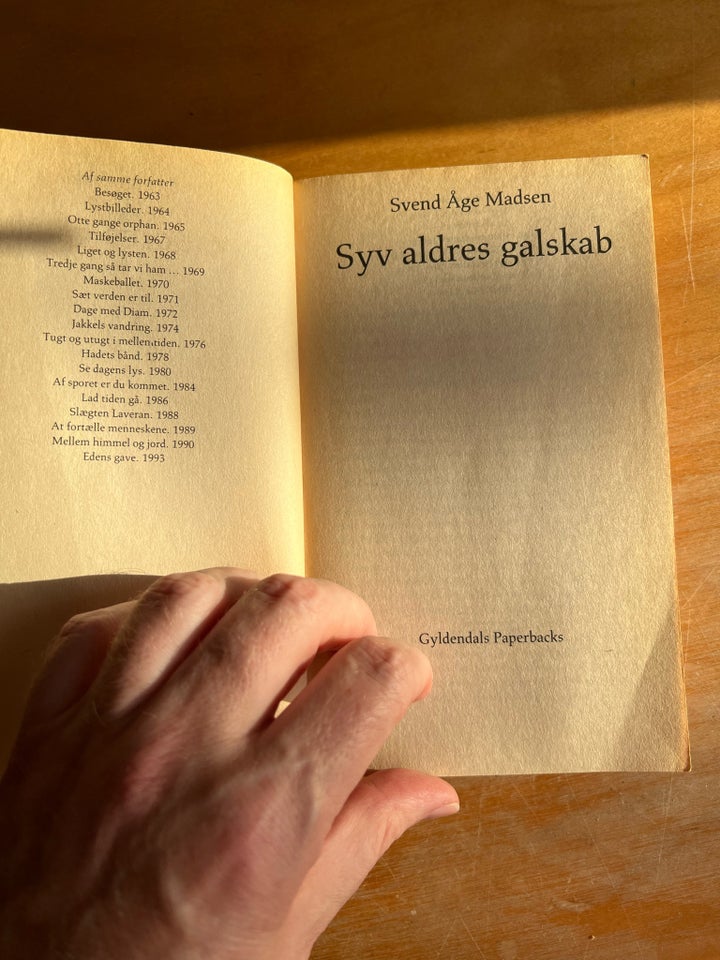 Af samme forfatter
Besøget. 1963
Lystbilleder. 1964
Otte gange orphan. 1965
Tilføjelser. 1967
Liget og lysten. 1968
Tredje gang så tar vi ham ... 1969
Maskeballet. 1970
Sæt verden er til. 1971
Dage med Diam. 1972
Jakkels vandring. 1974
Tugt og utugt i mellemtiden. 1976
Hadets bånd. 1978
Se dagens lys. 1980
Af sporet er du kommet. 1984
Lad tiden gå. 1986
Slægten Laveran. 1988
At fortælle menneskene. 1989
Mellem himmel og jord. 1990
Edens gave. 1993
Svend Åge Madsen
Syv aldres galskab
Gyldendals Paperbacks